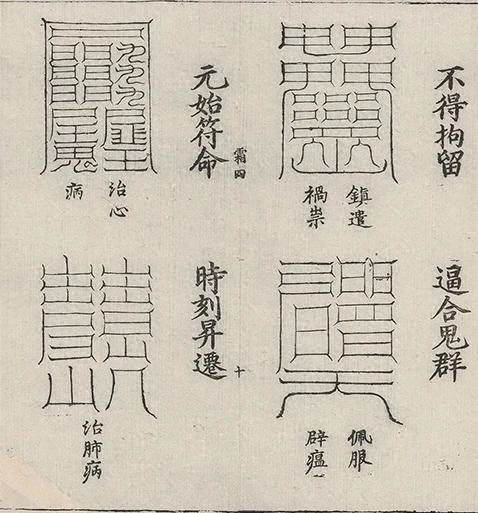 不得拘留
鎮遣
禍祟
逼合鬼群
佩服
辟瘟
元始符命
霜四
治心
病
時刻昇遷
十
治肺病